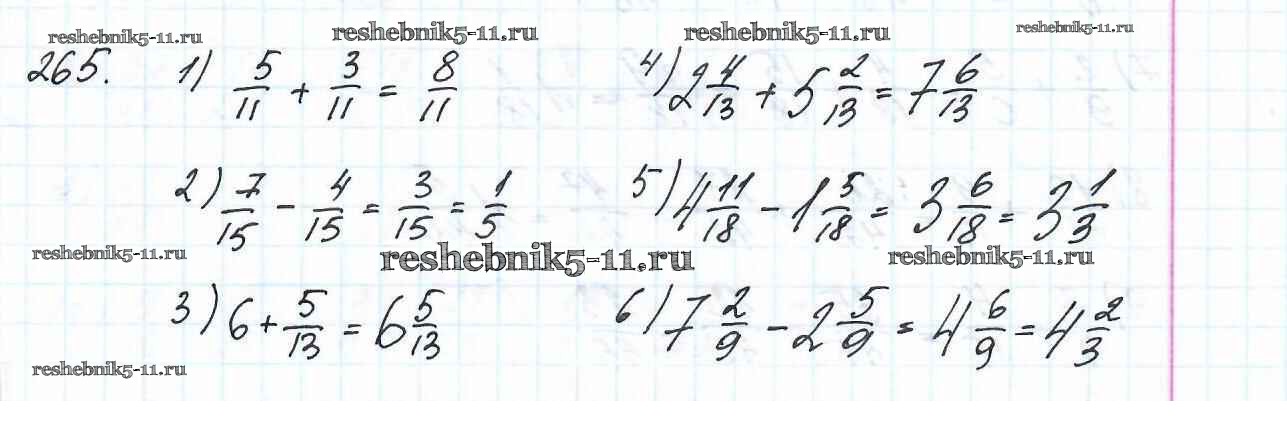 reshebnik5-11.ru reshebnik5-11.ru reshebnik5-11.ru reshebnik5-11.ru
265. 1) 5/11 + 3/11 = 8/11 4) 2 4/13 + 5 2/13 = 7 6/13
2) 7/15 - 4/15 = 3/15 = 1/5 5) 4 11/18 - 1 5/18 = 3 6/18 = 3 1/3
reshebnik5-11.ru reshebnik5-11.ru reshebnik5-11.ru
3) 6 + 5/13 = 6 5/13 6) 7 2/9 - 2 5/9 = 4 6/9 = 4 2/3
reshebnik5-11.ru